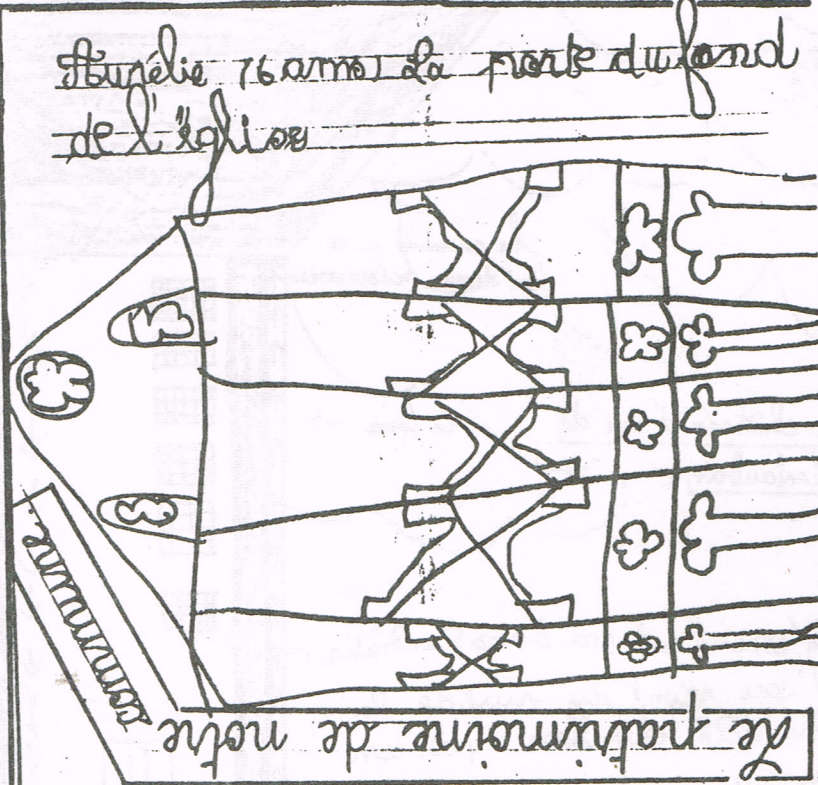 Aurélie (6 ans) La porte du fond
de l'église
Le patrimoine de notre
commune